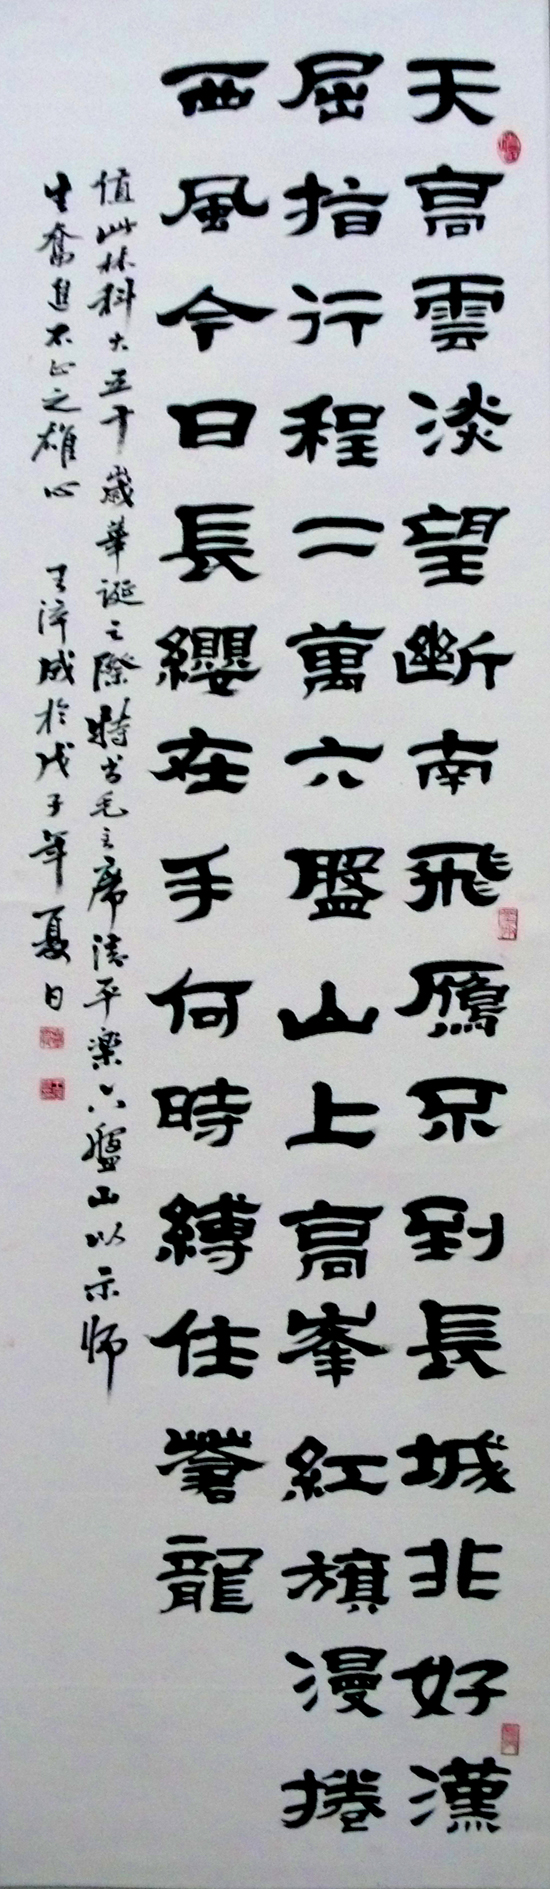 天高雲淡望斷南飛鴈不到長城非好漢
屈指行程二萬六盤山上高峯紅旗漫捲
西風今日長纓在手何時縛住蒼龍
值此林科大五十歲華誕之際特书毛主席清平樂六盤山以示师
生奮進不止之雄心 王泽成於戊子年夏日